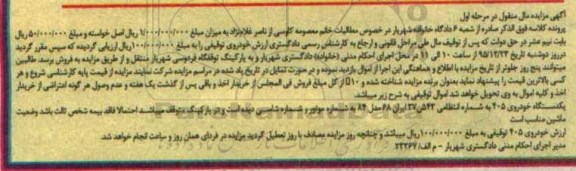 آگهی مزایده مال منقول در مرحله اول
پرونده کلاسه فوق الذکر صادره از شعبه ۶ دادگاه خانواده شهریار در خصوص مطالبات خانم معصومه کلوسی از ناصر غلام‌نژاد به میزان مبلغ ۱/۰۰۰/۰۰۰/۰۰۰ ریال اصل خواسته و مبلغ ۵۰/۰۰۰/۰۰۰ ریال
بابت نیم عشر در حق دولت که پس از توقیف مال طی مراحل قانونی و ارجاع به کارشناس رسمی دادگستری ارزش خودروی توقیفی را به مبلغ ۱۰۰/۰۰۰/۰۰۰ ریال ارزیابی گردیده که سپس مقرر گردید
در روز دوشنبه تاریخ ۹۵/۱۲/۲۳ از ساعت ۱۰ الی ۱۱ در محل اجرای احکام مدنی (خانواده) دادگستری شهریار و به پارکینگ توقفگاه فردوسی شهریار منتقل و از طریق مزایده به فروش برسد. طالبین
میتوانند پنج روز جلوتر از تاریخ مزایده با اطلاع و هماهنگی این اجرا از اموال بازدید نموده و در صورت تمایل در تاریخ یاد شده در مراسم مزایده شرکت نمایند مزایده از قیمت پایه کارشناسی شروع و هر
کسی بالاترین قیمت را پیشنهاد نماید بعنوان برنده مزایده شناخته شده و ۱۰٪ از کل مبلغ فروش فی المجلس از خریدار اخذ و باقی پس از گذشت یک هفته و عدم وصول هر گونه اعتراضی از خریدار
اخذ و کلیه اموال به وی تحویل خواهد شد اموال توقیفی به شرح زیر میباشد
یکدستگاه خودروی ۴۰۵ به شماره انتظامی ایران ۶۸ مدل ۸۴ به شماره موتور و شماره شاسی دیده است و در پارکینگ متوقف میباشد احتمالا فاقد بیمه شخص ثالث باشد وضعیت
ماشین مناسب است
ارزش خودروی ۴۰۵ توقیفی به مبلغ ۱۰۰/۰۰۰/۰۰۰ ریال میباشد و چنانچه روز مزایده مصادف با روز تعطیل گردید مزایده در فردای همان روز و ساعت انجام خواهد شد.
مدیر اجرای احکام مدنی دادگستری شهریار - م الف/ ۲۳۲۶۷